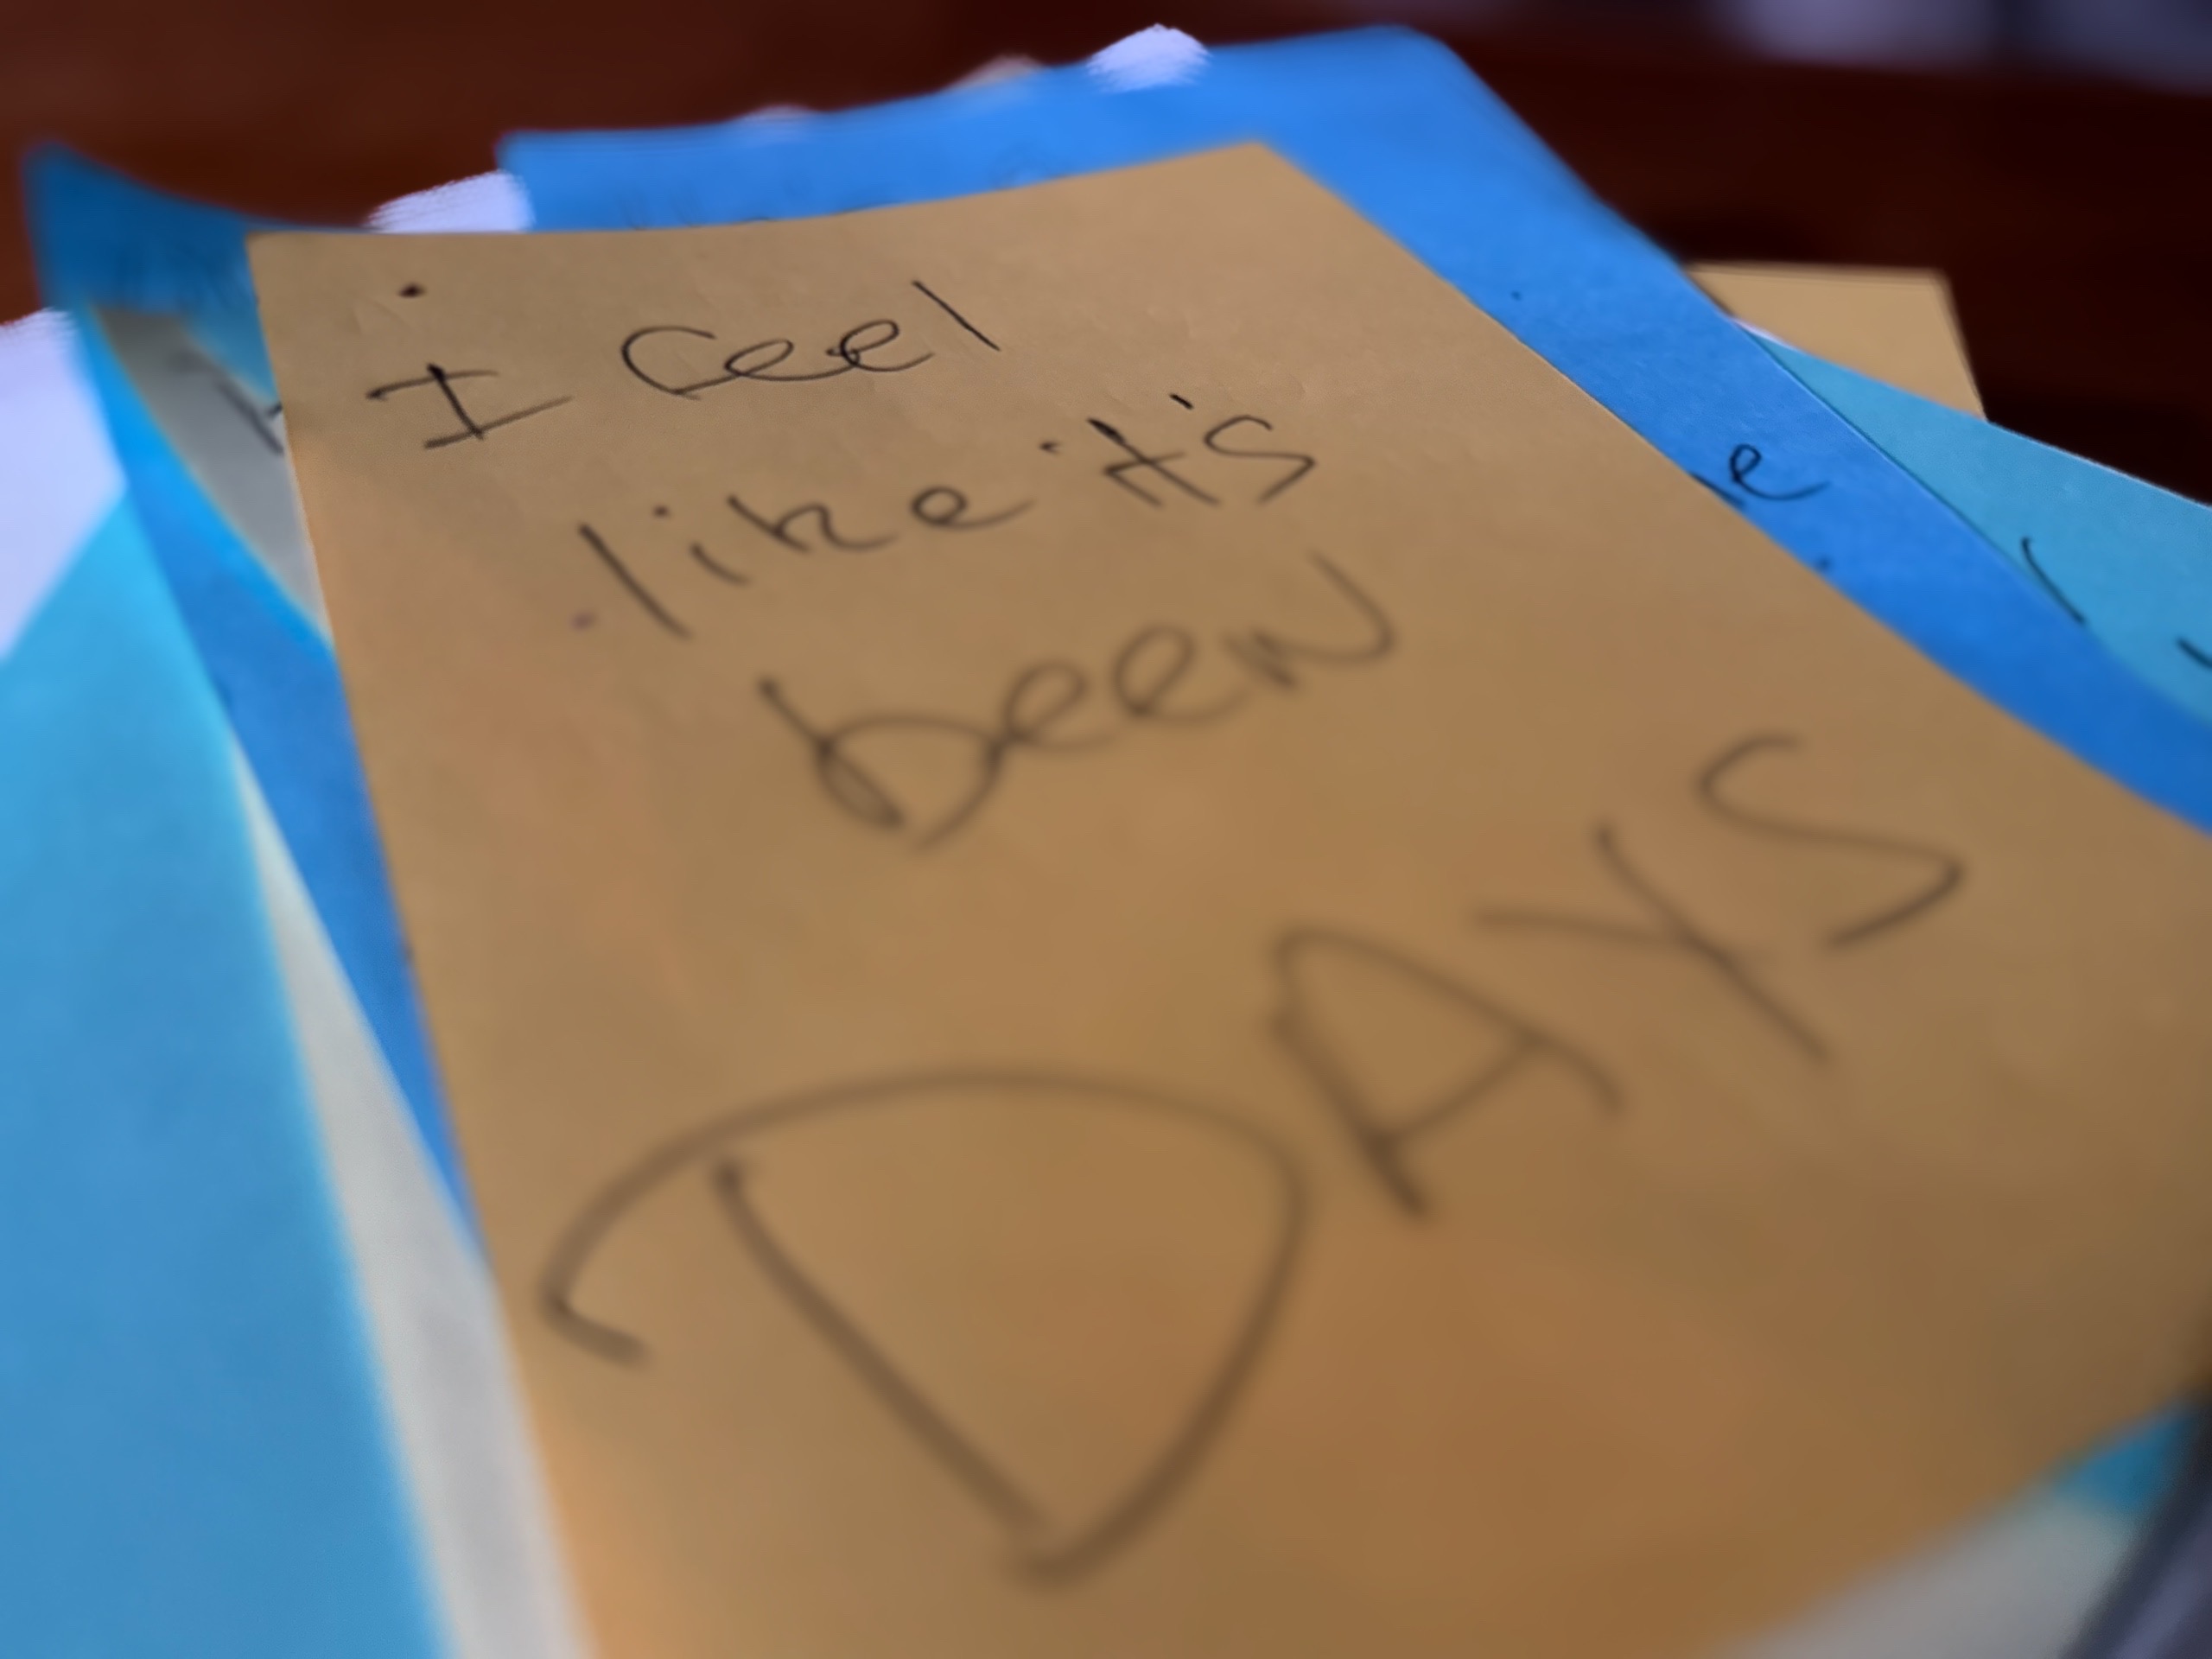 I feel
like it's
been
DAYS